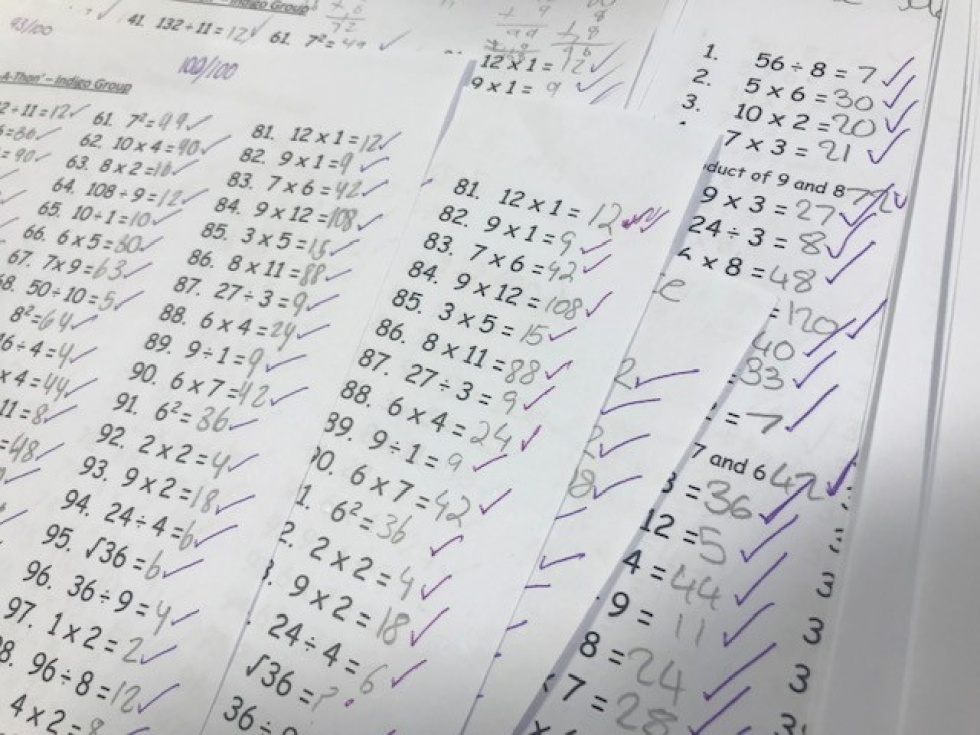 93/100
41. 132÷11=12
61. 7²=49
Indigo Group
100/100
-A-Than' – Indigo Group
2÷11=12
61. 7²=49
62. 10 x 4=40
63. 8 x 2=16
64. 108÷9=12
65. 10÷1=10
66. 6 x 5=30
67. 7x9=63
68. 50÷10=5
8²=64
16÷4=4
x 4=44
11=8
=48
81. 12 x 1=12
82. 9 x 1=9
83. 7 x 6=42
84. 9 x 12=108
85. 3 x 5=15
86. 8 x 11=88
87. 27÷3=9
88. 6 x 4=24
89. 9÷1=9
90. 6 x 7=42
91. 6²=36
92. 2 x 2=4
93. 9 x 2=18
94. 24÷4=6
95. √36=6
96. 36÷9=4
97. 1 x 2=2
8. 96÷8=12
4 x 2=8
12 x 1=12
9 x 1=9
81. 12 x 1=12
82. 9 x 1=9
83. 7 x 6=42
84. 9 x 12=108
85. 3 x 5=15
86. 8 x 11=88
87. 27÷3=9
88. 6 x 4=24
89. 9÷1=9
90. 6 x 7=42
1. 6²=36
2. 2 x 2=4
9 x 2=18
24÷4=6
√36=?
36÷
1. 56÷8=7
2. 5 x 6=30
3. 10 x 2=20
7 x 3=21
duct of 9 and 8 72
9 x 3=27
24÷3=8
x 8=48
=120
40
=33
=7
7 and 6 42
3=36
12=5
4=44
9=11
8=24
7=28